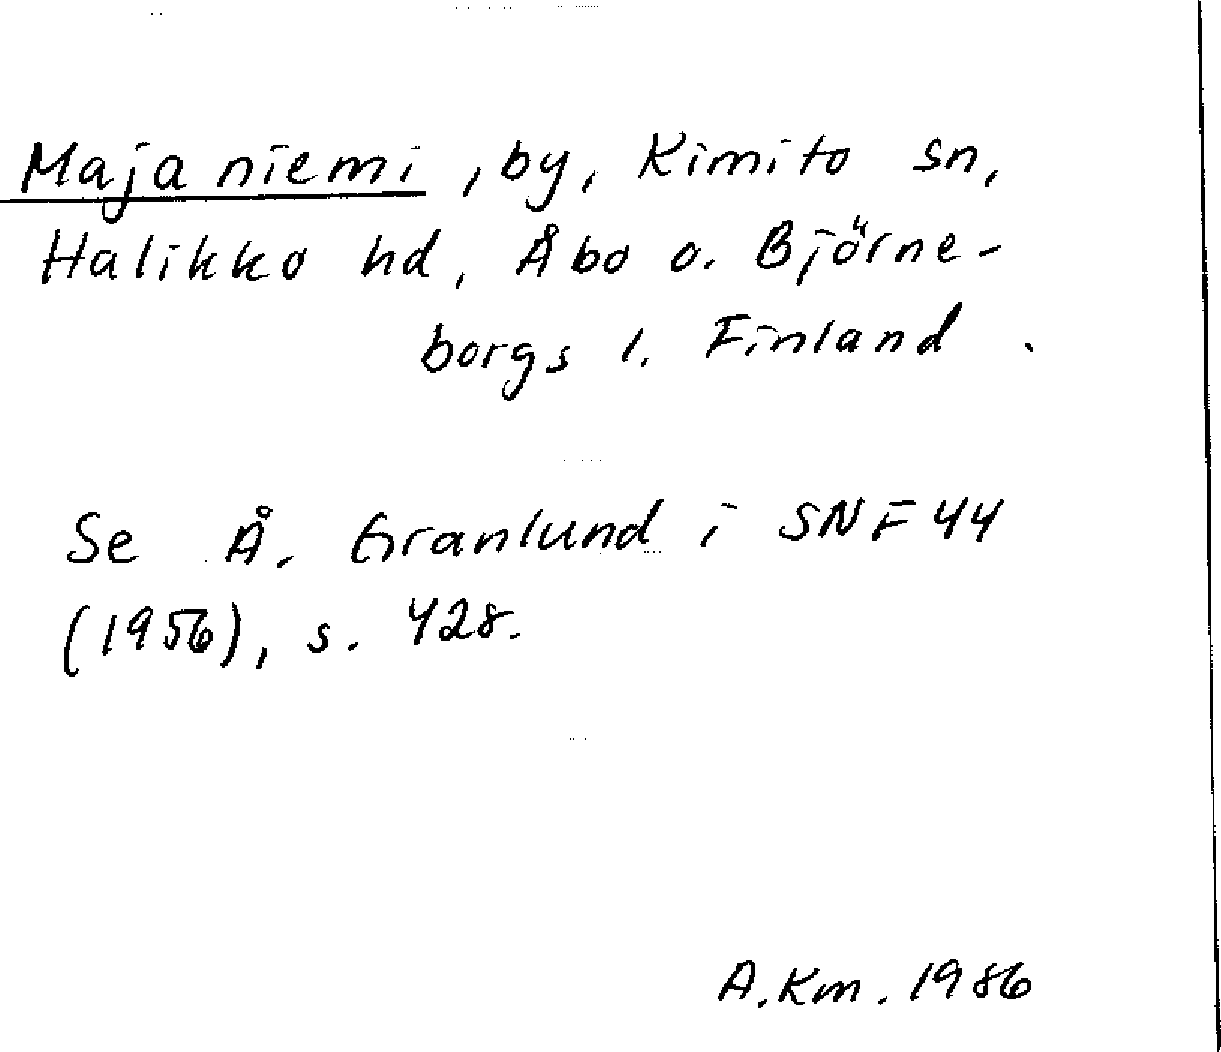 Majaniemi, by, Kimito sn,
Halikko hd, Åbo o. Björne-
borgs l. Finland.
Se Å. Granlund i SNF 44
(1956), s. 428.
A. Km. 1986